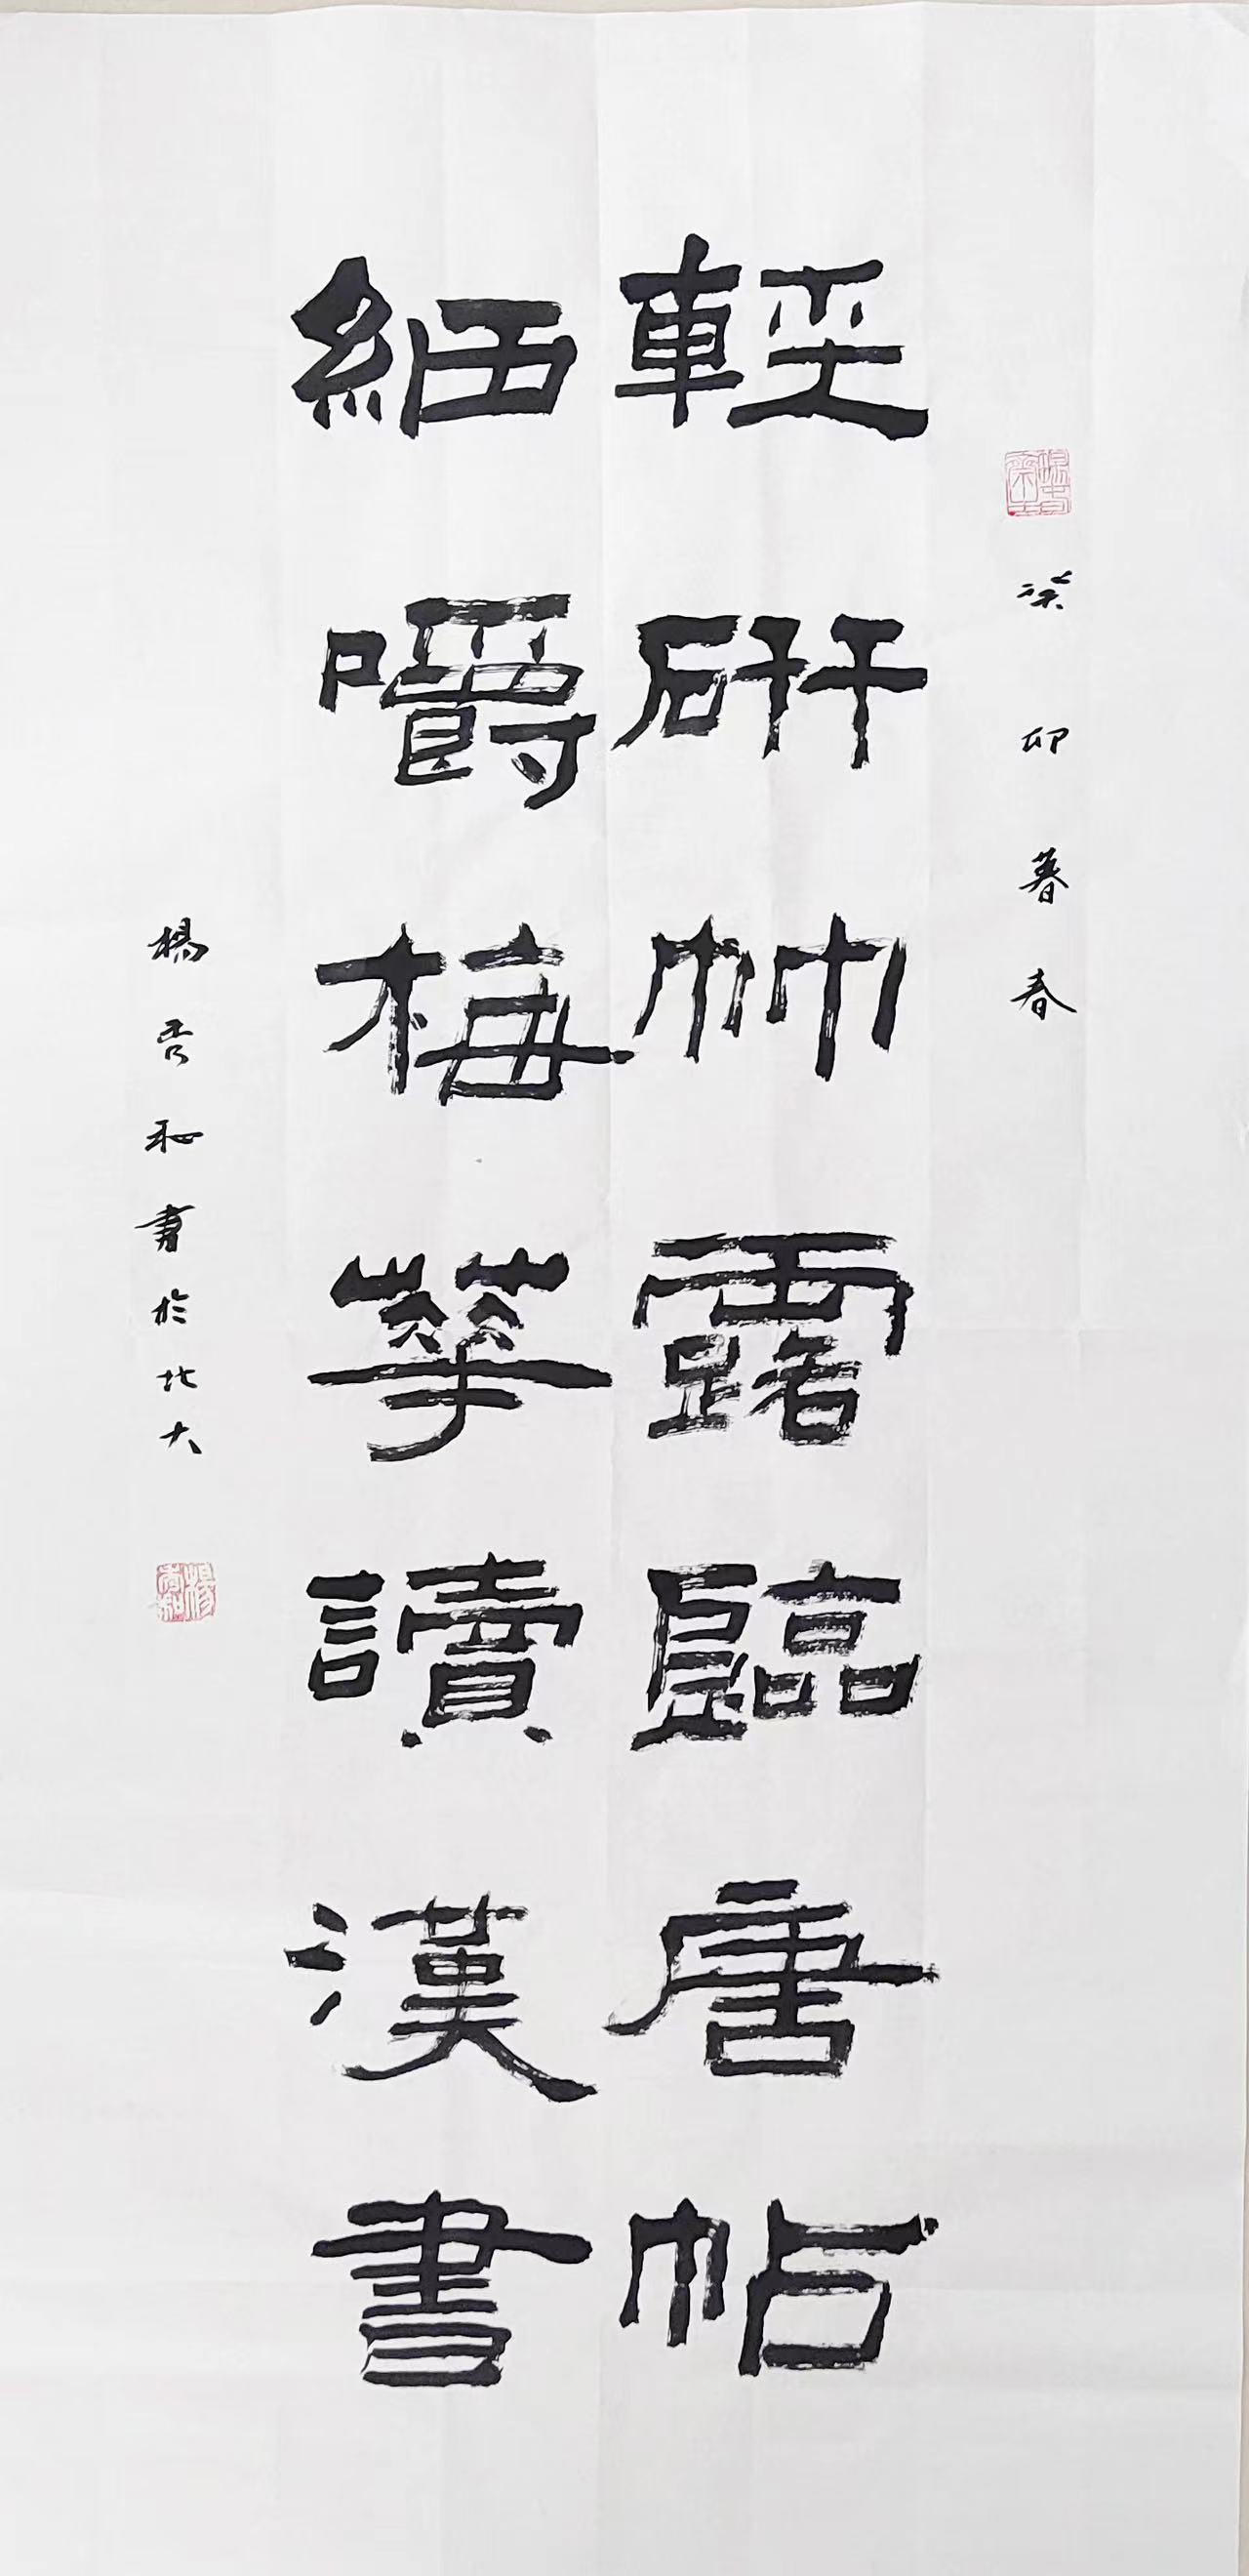 癸卯暮春
輕研竹露臨唐帖
細嚼梅華讀漢書
楊書於北大